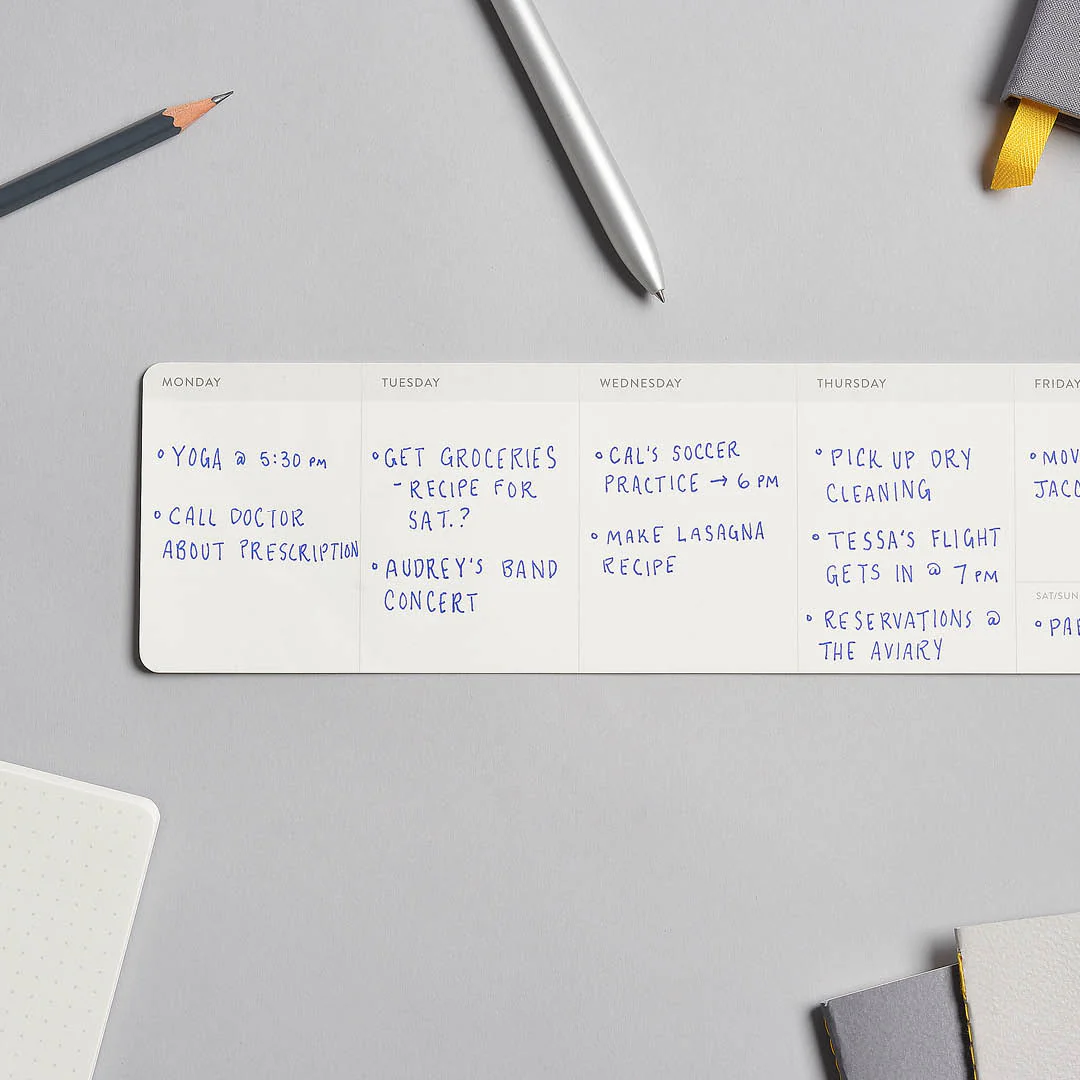 MONDAY
YOGA @ 5:30 PM
CALL DOCTOR
ABOUT PRESCRIPTION
TUESDAY
GET GROCERIES
- RECIPE FOR
SAT.?
AUDREY'S BAND
CONCERT
WEDNESDAY
CAL'S SOCCER
PRACTICE → 6 PM
MAKE LASAGNA
RECIPE
THURSDAY
PICK UP DRY
CLEANING
TESSA'S FLIGHT
GETS IN @ 7 PM
RESERVATIONS @
THE AVIARY
FRIDAY
SAT/SUN